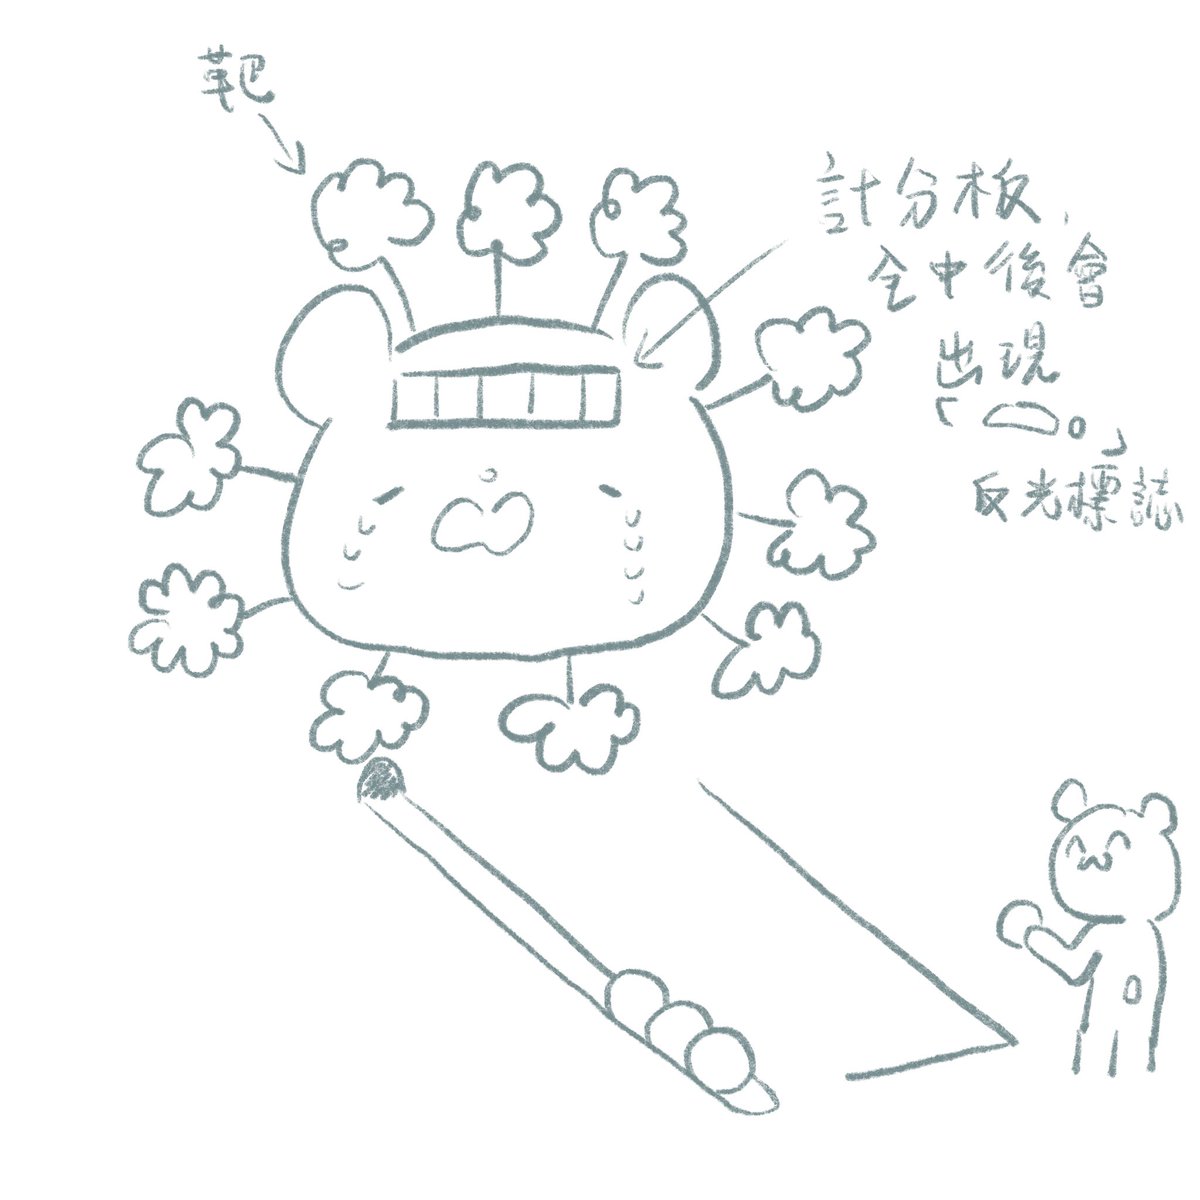 靶
計分板,
全中後會
出現
「 。」
反光標誌